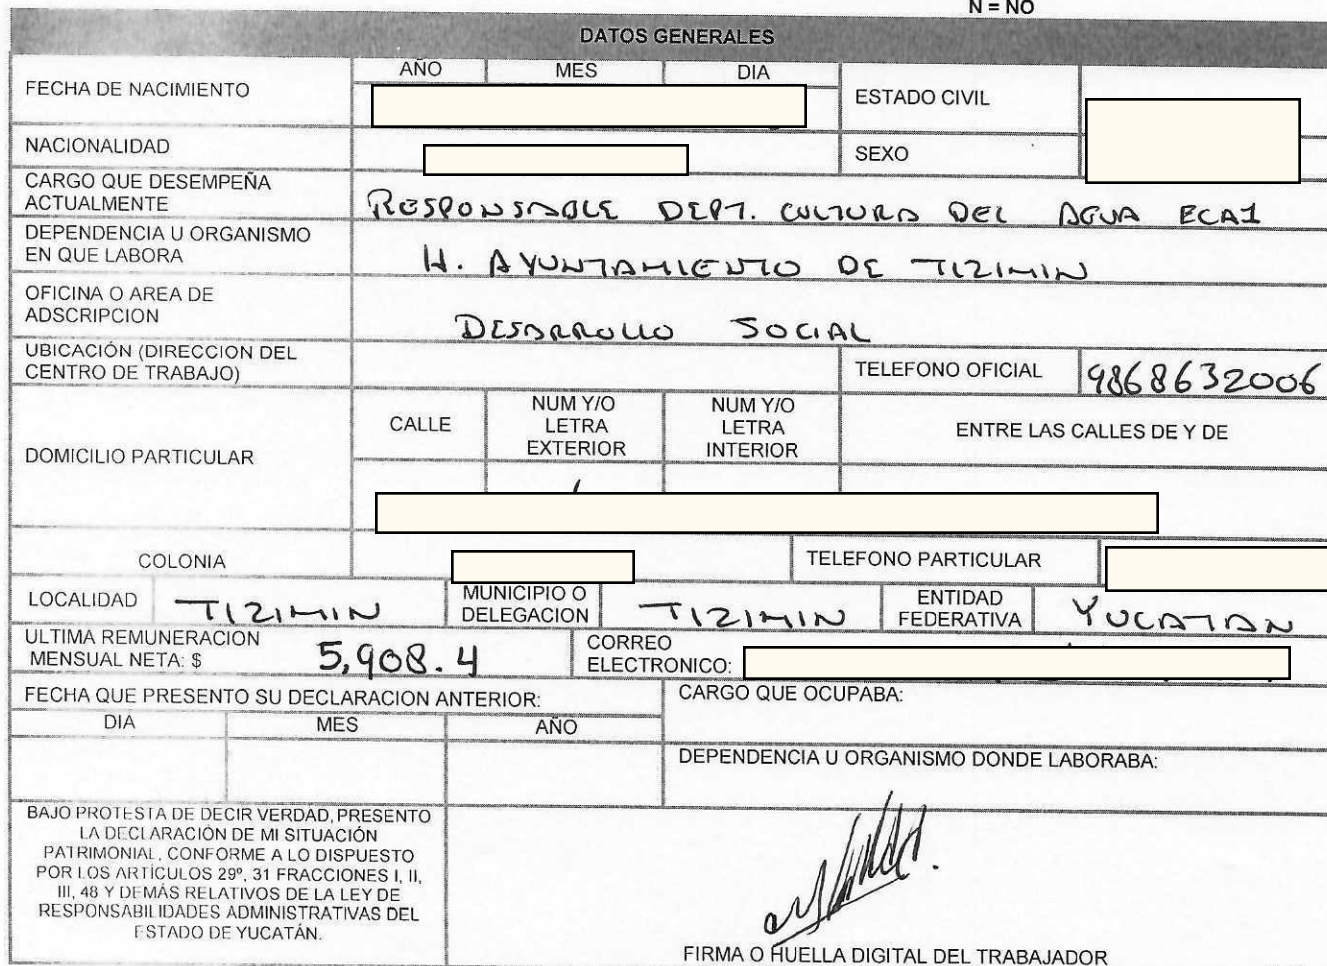 N = NO
DATOS GENERALES
FECHA DE NACIMIENTO
AÑO MES DIA
ESTADO CIVIL
NACIONALIDAD
SEXO
CARGO QUE DESEMPEÑA
ACTUALMENTE
RESPONSABLE DEPT. CULTURA DEL AGUA ECA1
DEPENDENCIA U ORGANISMO
EN QUE LABORA
H. AYUNTAMIENTO DE TIZIMIN
OFICINA O AREA DE
ADSCRIPCION
DESARROLLO SOCIAL
UBICACIÓN (DIRECCION DEL
CENTRO DE TRABAJO)
TELEFONO OFICIAL 9868632006
DOMICILIO PARTICULAR
CALLE
NUM Y/O
LETRA
EXTERIOR
NUM Y/O
LETRA
INTERIOR
ENTRE LAS CALLES DE Y DE
COLONIA
TELEFONO PARTICULAR
LOCALIDAD TIZIMIN
MUNICIPIO O
DELEGACION
TIZIMIN
ENTIDAD
FEDERATIVA
YUCATAN
ULTIMA REMUNERACION
MENSUAL NETA: $ 5,908.4
CORREO
ELECTRONICO:
FECHA QUE PRESENTO SU DECLARACION ANTERIOR:
DIA MES AÑO
CARGO QUE OCUPABA:
DEPENDENCIA U ORGANISMO DONDE LABORABA:
BAJO PROTESTA DE DECIR VERDAD, PRESENTO
LA DECLARACIÓN DE MI SITUACIÓN
PATRIMONIAL, CONFORME A LO DISPUESTO
POR LOS ARTÍCULOS 29º, 31 FRACCIONES I, II,
III, 48 Y DEMÁS RELATIVOS DE LA LEY DE
RESPONSABILIDADES ADMINISTRATIVAS DEL
ESTADO DE YUCATÁN.
FIRMA O HUELLA DIGITAL DEL TRABAJADOR